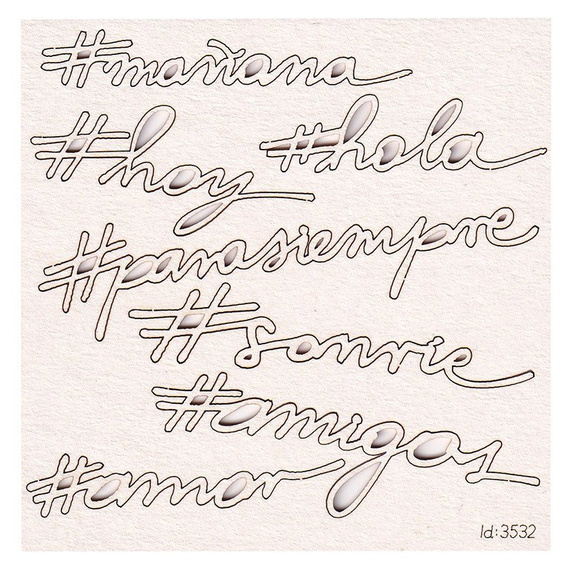 #mañana
#hoy #hola
#parasiempre
#sonrie
#amigas
#amor
Id:3532